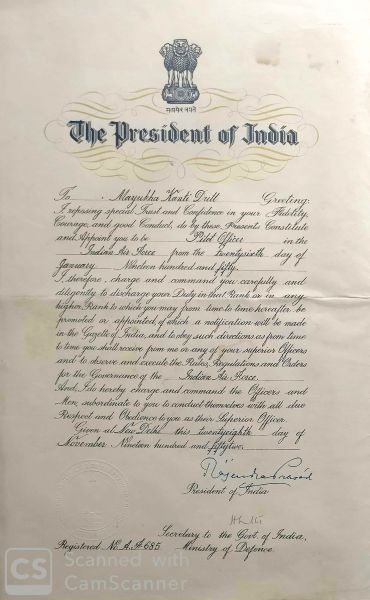 सत्यमेव जयते
The President of India
To Mayukha Kanti Dutt Greeting:
I, reposing special Trust and Confidence in your Fidelity,
Courage, and good Conduct, do by these Presents Constitute
and Appoint you to be Pilot Officer in the
Indian Air Force from the twentysixth day of
January Nineteen hundred and fifty.
I, therefore, charge and command you carefully and
diligently to discharge your Duty in that Rank or in any
higher Rank to which you may from time to time hereafter be
promoted or appointed, of which a notification will be made
in the Gazette of India, and to obey such directions as from time
to time you shall receive from me or any of your superior Officers
and to observe and execute the Rules, Regulations and Orders
for the Governance of the Indian Air Force.
And I do hereby charge and command the Officers and
Men, subordinate to you to conduct themselves with all due
Respect and Obedience to you as their Superior Officer.
Given at New Delhi this twentyeighth day of
November Nineteen hundred and fiftytwo.
Rajendra Prasad
President of India
Secretary to the Govt. of India,
Registered No. A.F. 685 Ministry of Defence.
CS Scanned with
CamScanner